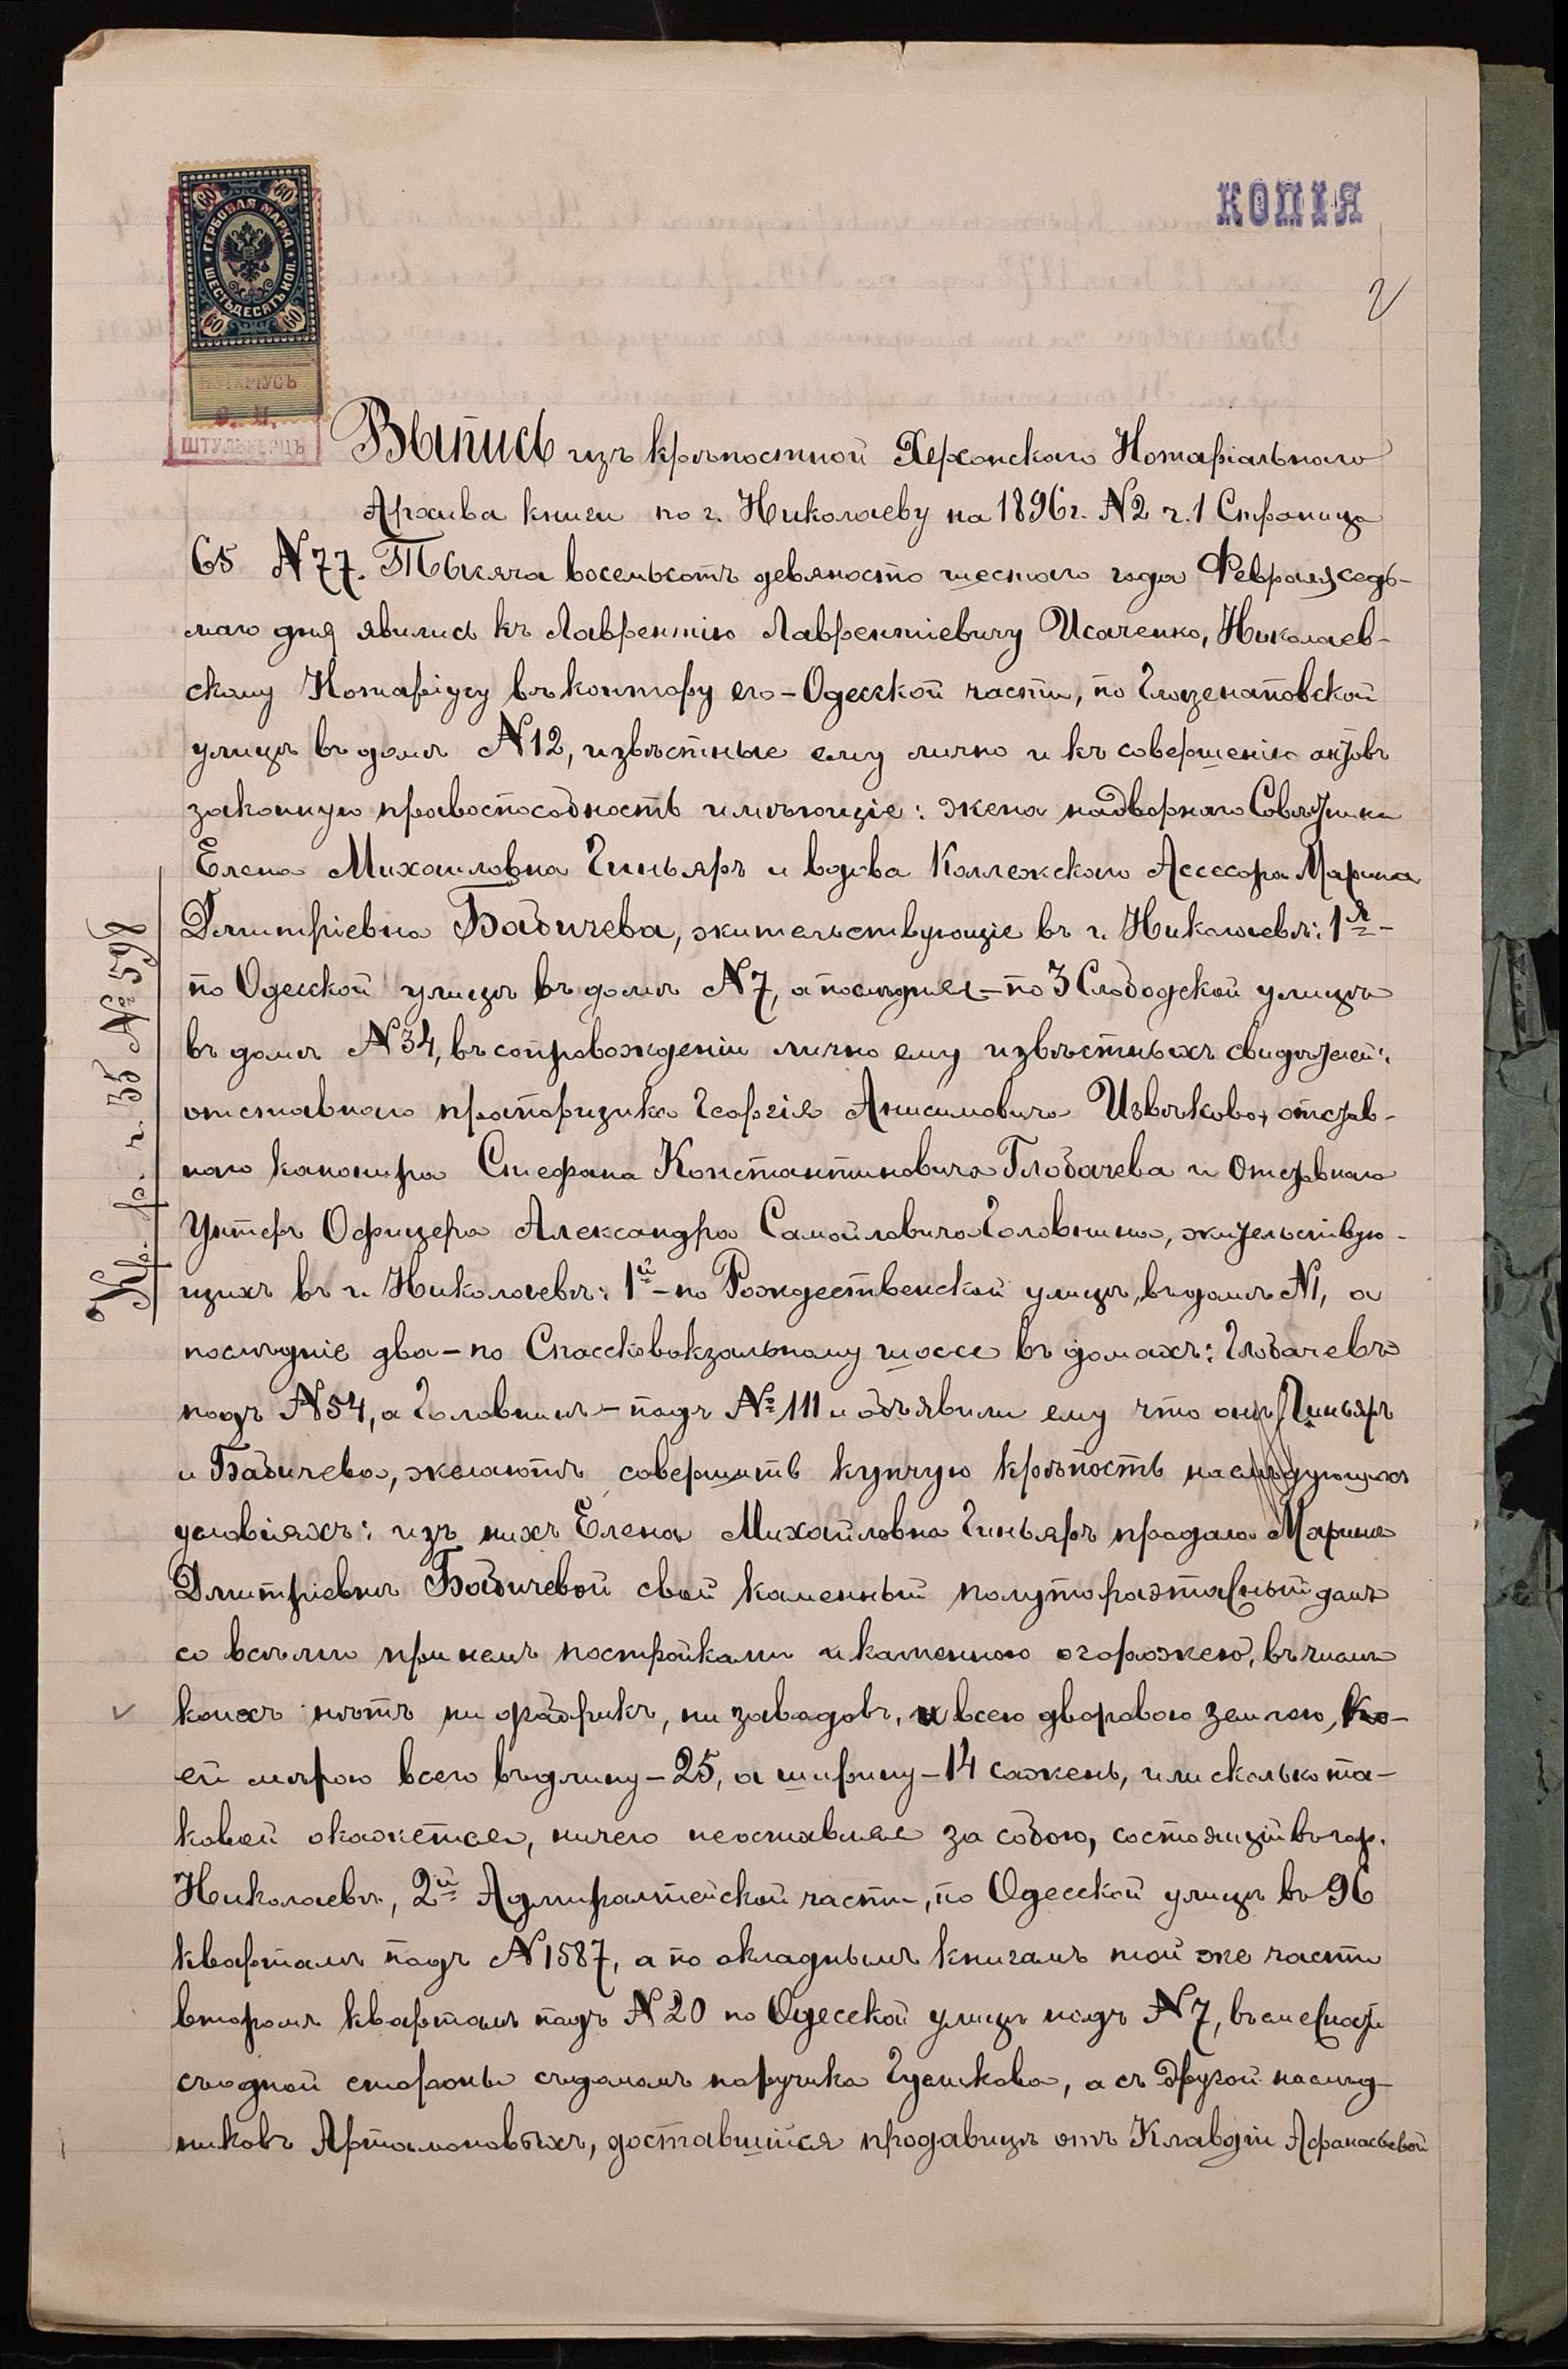 КОПІЯ
2
60 60
ГЕРБОВАЯ МАРКА
ШЕСТЬДЕСЯТЪ КОП.
60 60
НОТАРІУСЪ
ШТУЛЬКЕРЦЪ
Выпись изъ крѣпостной Херсонскаго Нотаріальнаго
Архива книги по г. Николаеву на 1896 г. N2 ч. 1 Страница
65 N77. Тысяча восемьсотъ девяносто шестаго года Февраля седь-
маго дня явились къ Лаврентію Лаврентіевичу Исаченко, Николаев-
скому Нотаріусу въ контору его - Одесской части, по Глазенаповской
улицѣ въ домѣ N12, извѣстные ему лично и къ совершенію актовъ
законную правоспособность имѣющіе: жена надворнаго Совѣтника
Елена Михайловна Гиньяръ и вдова Коллежскаго Ассесора Марина
Дмитріевна Бабичева, жительствующіе въ г. Николаевѣ: 1я -
по Одесской улицѣ въ домѣ N7, а послѣдняя - по 3 Слободской улицѣ
въ домѣ N34, въ сопровожденіи лично ему извѣстныхъ свидѣтелей:
отставнаго прапорщика Георгія Анисимовича Извѣкова, отстав-
наго канонира Стефана Константиновича Глобачева и Отставнаго
Унтеръ Офицера Александра Самойловича Головнина, жительствую-
щихъ въ г. Николаевѣ: 1й - по Рождественской улицѣ, въ домѣ N1, а
послѣдніе два - по Спассковокзальному шоссе въ домахъ: Глобачевъ
подъ N54, а Головнинъ - подъ № 111 и объявили ему что онѣ, Гиньяръ
и Бабичева, желаютъ совершить купчую крѣпость на слѣдующихъ
условіяхъ: изъ нихъ Елена Михайловна Гиньяръ продала Маринѣ
Дмитріевнѣ Бабичевой свой каменный полутораэтажный домъ
со всѣми при немъ постройками и каменною огорожею, въ числѣ
коихъ нѣтъ ни фабрикъ, ни заводовъ, и всею дворовою землею, ко-
ей мѣрою всего въ длину - 25, а ширину - 14 сажень, или сколько та-
ковой окажется, ничего неоставляя за собою, состоящій въ гор.
Николаевѣ, 2й Адмиралтейской части, по Одесской улицѣ въ 96
кварталѣ подъ N1587, а по окладнымъ книгамъ той же части
второмъ кварталѣ подъ N20 по Одесской улицѣ подъ N7, въ смежности
съ одной стороны съ домомъ поручика Гушкова, а съ другой наслѣд-
никовъ Артамоновыхъ, доставшійся продавицѣ отъ Клавдіи Афанасьевой
Кр. р. ч. 33 № 598